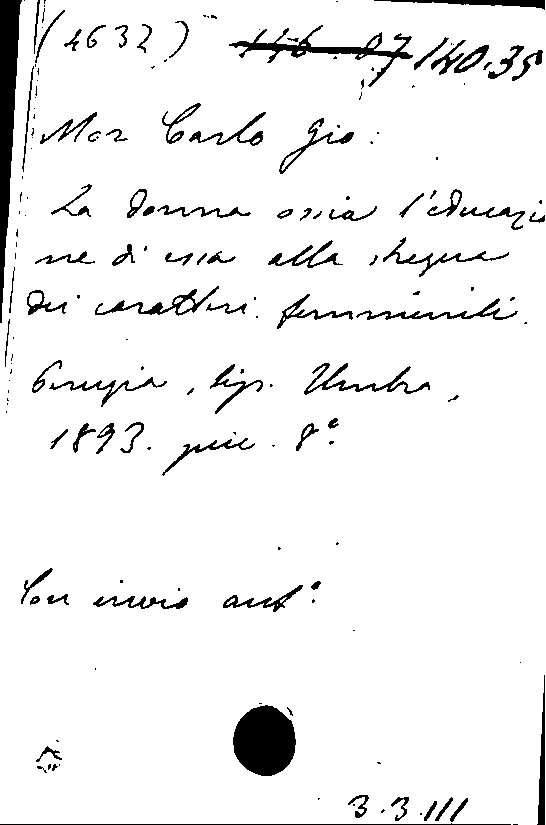 (4632) 146.87 140.35
Mor Carlo Gio:
La donna ossia l'educazio
ne di essa alla stregua
dei caratteri femminili.
Perugia, tip. Umbra,
1893. picc. 8°.
Con invio aut°.
3.3.III